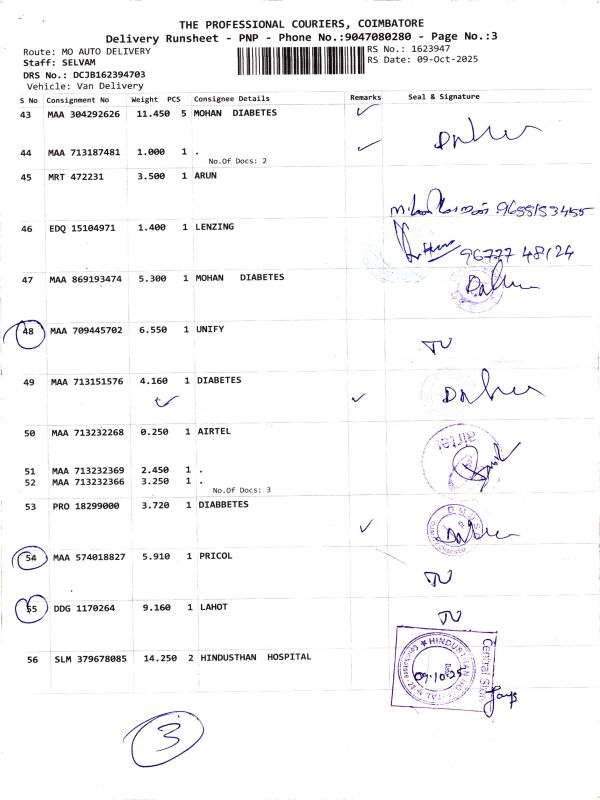 THE PROFESSIONAL COURIERS, COIMBATORE
Delivery Runsheet - PNP - Phone No.:9047080280 - Page No.:3
Route: MO AUTO DELIVERY
RS No.: 1623947
Staff: SELVAM
RS Date: 09-Oct-2025
DRS No.: DCJB162394703
Vehicle: Van Delivery
S No Consignment No Weight PCS Consignee Details Remarks Seal & Signature
43 MAA 304292626 11.450 5 MOHAN DIABETES
44 MAA 713187481 1.000 1 .
No.Of Docs: 2
45 MRT 472231 3.500 1 ARUN
9688183455
46 EDQ 15104971 1.400 1 LENZING
96777 48124
47 MAA 869193474 5.300 1 MOHAN DIABETES
48 MAA 709445702 6.550 1 UNIFY
49 MAA 713151576 4.160 1 DIABETES
50 MAA 713232268 0.250 1 AIRTEL
airtel
51 MAA 713232369 2.450 1 .
52 MAA 713232366 3.250 1 .
No.Of Docs: 3
53 PRO 18299000 3.720 1 DIABBETES
54 MAA 574018827 5.910 1 PRICOL
55 DDG 1170264 9.160 1 LAHOT
56 SLM 379678085 14.250 2 HINDUSTHAN HOSPITAL
HINDUSTHAN HOSPITAL
09.10.25
3